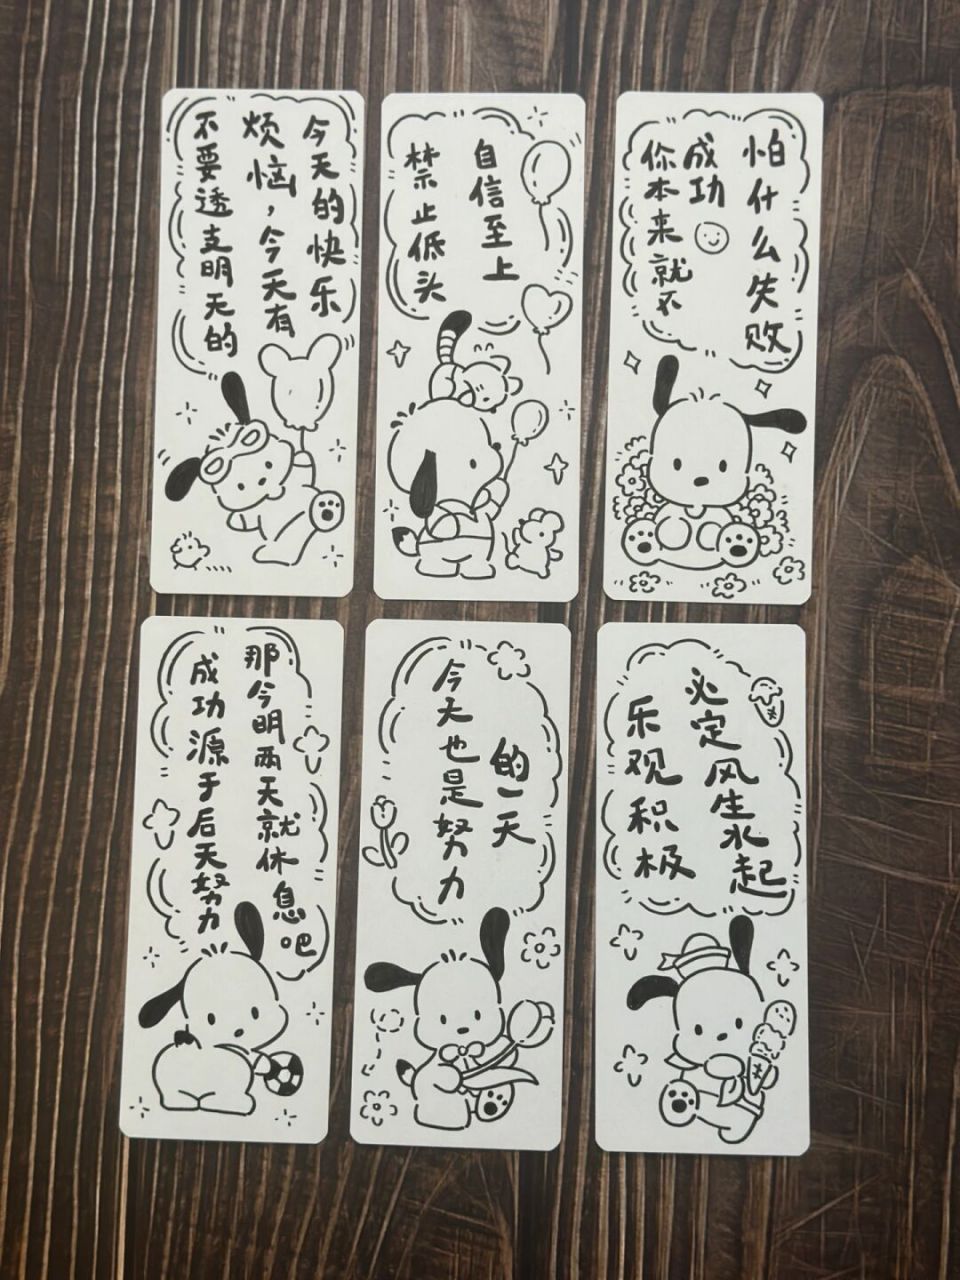 不要透支明天的
烦恼，今天有
今天的快乐
禁止低头
自信至上
你本来就不
成功
怕什么失败
成功源于后天努力
那今明两天就休息吧
今天也是努力
的一天
乐观积极
必定风生水起